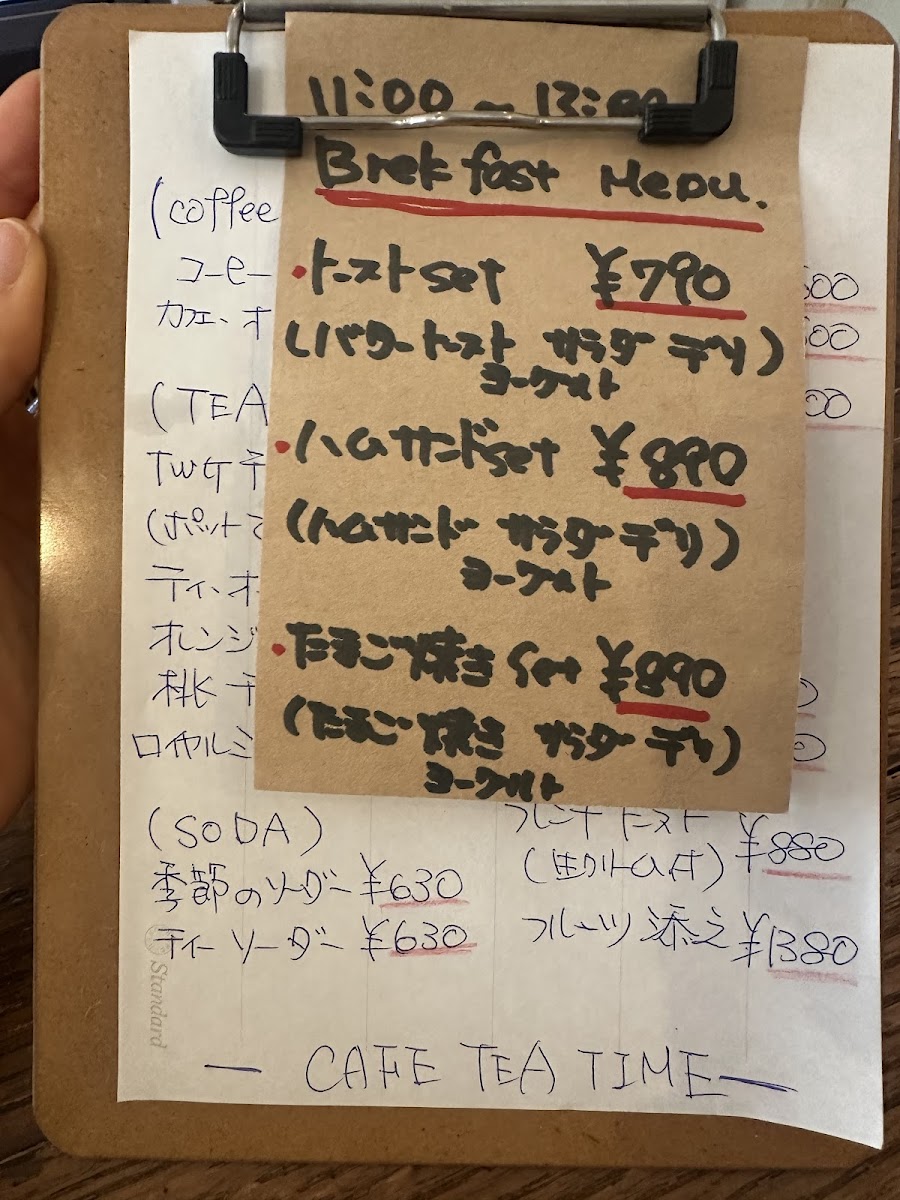 11:00 ~ 13:00
Brekfast Menu.
・トーストset ¥790
(バタートースト サラダ デリ)
ヨーグルト
・ハムサンドset ¥890
(ハムサンド サラダ デリ)
ヨーグルト
・たまご焼きset ¥890
(たまご焼き サラダ デリ)
ヨーグルト
(coffee
コーヒー
カフェ・オ
(TEA
TWG テ
(ポットで
ティ・オ
オレンジ
桃テ
ロイヤルミ
(SODA)
季節のソーダー ¥630
ティーソーダー ¥630
フレンチトースト ¥880
(生クリーム付)
フルーツ添え ¥1380
Standard
— CAFE TEA TIME —